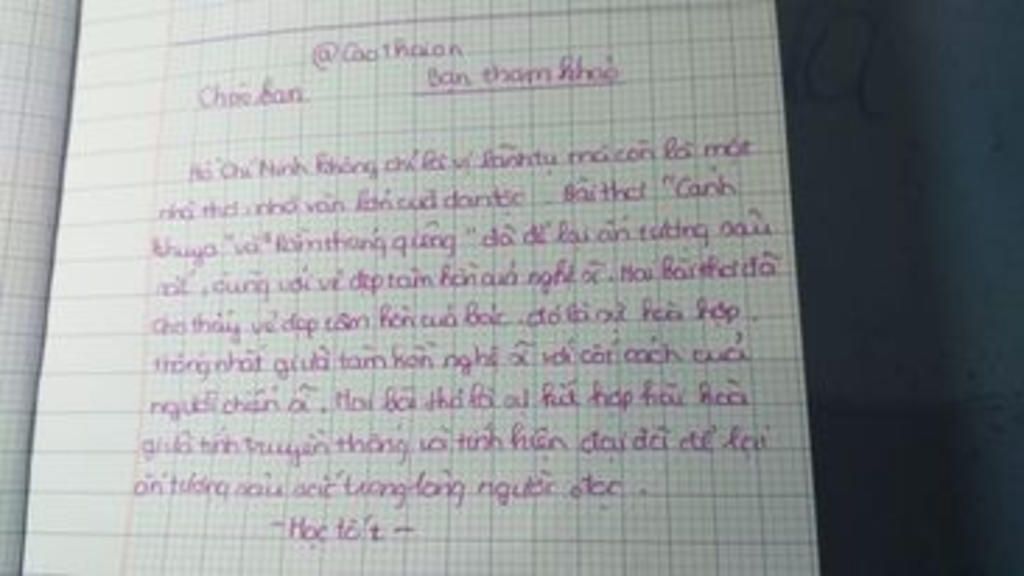 @Caothaian
Chào bạn
Bạn tham khảo
Hồ Chí Minh không chỉ là vị lãnh tụ mà còn là một
nhà thơ, nhà văn lớn của dân tộc Bài thơ "Cảnh
khuya" và "Rằm tháng giêng" đã để lại ấn tượng sâu
sắc, cùng với vẻ đẹp tâm hồn của nghệ sĩ. Hai bài thơ đã
cho thấy vẻ đẹp tâm hồn của Bác, đó là sự hoà hợp,
thống nhất giữa tâm hồn nghệ sĩ với cốt cách của
người chiến sĩ. Hai bài thơ là sự kết hợp hài hoà
giữa tính truyền thống và tính hiện đại đã để lại
ấn tượng sâu sắc trong lòng người đọc.
- Học tốt -